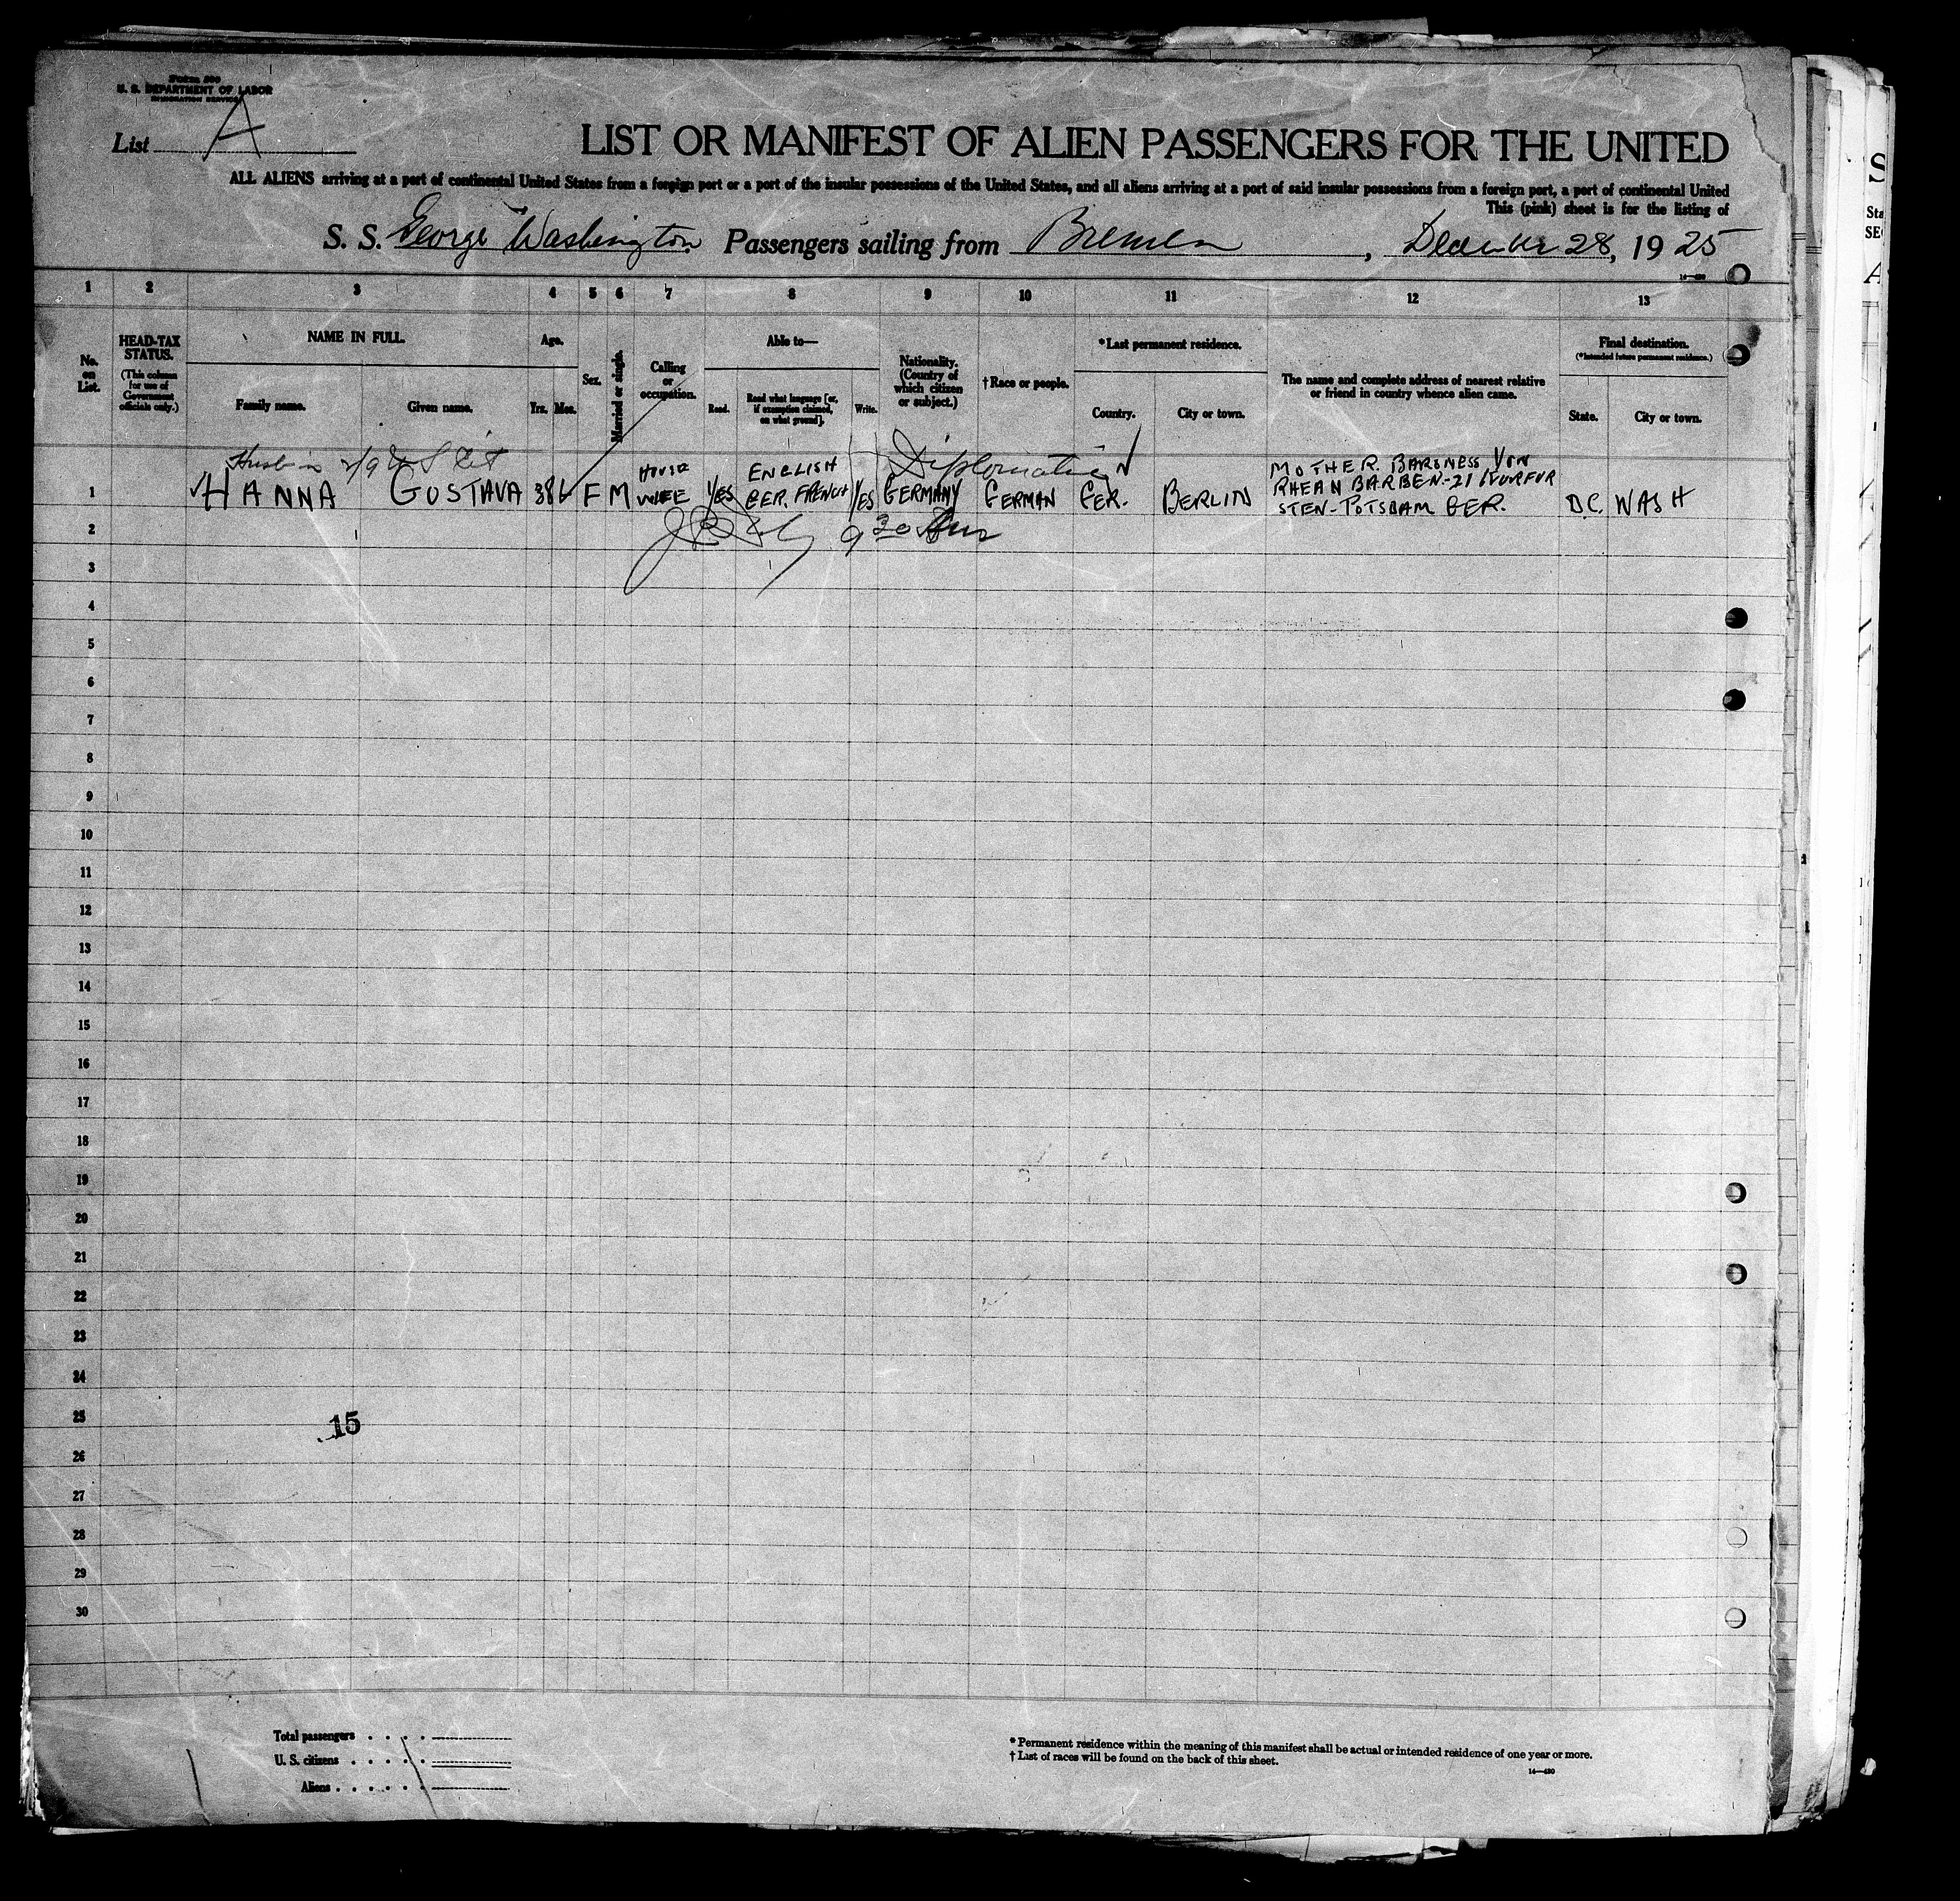 Form 500
U. S. DEPARTMENT OF LABOR
IMMIGRATION SERVICE
List A
LIST OR MANIFEST OF ALIEN PASSENGERS FOR THE UNITED
ALL ALIENS arriving at a port of continental United States from a foreign port or a port of the insular possessions of the United States, and all aliens arriving at a port of said insular possessions from a foreign port, a port of continental United
This (pink) sheet is for the listing of
S. S. George Washington Passengers sailing from Bremen, December 28, 1925
14—430
1 2 3 4 5 6 7 8 9 10 11 12 13
No. on List.
HEAD-TAX STATUS.
(This column for use of Government officials only.)
NAME IN FULL.
Family name. Given name.
Age.
Yrs. Mos.
Sex.
Married or single.
Calling or occupation.
Able to—
Read. Read what language [or, if exemption claimed, on what ground]. Write.
Nationality. (Country of which citizen or subject.)
†Race or people.
*Last permanent residence.
Country. City or town.
The name and complete address of nearest relative or friend in country whence alien came.
Final destination.
(*Intended future permanent residence.)
State. City or town.
Diplomatic
1 HANNA GUSTAVA 38 F M HOUSE WIFE YES ENGLISH GER. FRENCH YES GERMANY GERMAN GER. BERLIN MOTHER. BARONESS VON RHEAN BARBEN-21 KURFUR STEN-POTSDAM GER. D.C. WASH
2
9 30
3
4
5
6
7
8
9
10
11
12
13
14
15
16
17
18
19
20
21
22
23
24
25
15
26
27
28
29
30
Total passengers
U. S. citizens
Aliens
* Permanent residence within the meaning of this manifest shall be actual or intended residence of one year or more.
† List of races will be found on the back of this sheet.
14—430